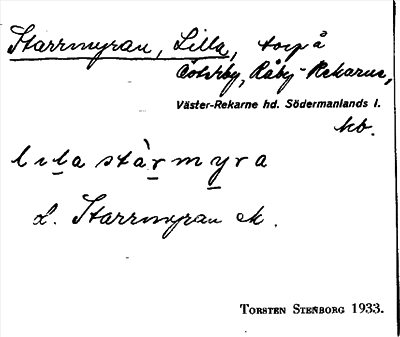 Starrmyran, Lilla, torp å
Råby-Rekarne,
Väster-Rekarne hd. Södermanlands l.
lila stàrmyra
L. Starrmyran ek.
TORSTEN STENBORG 1933.